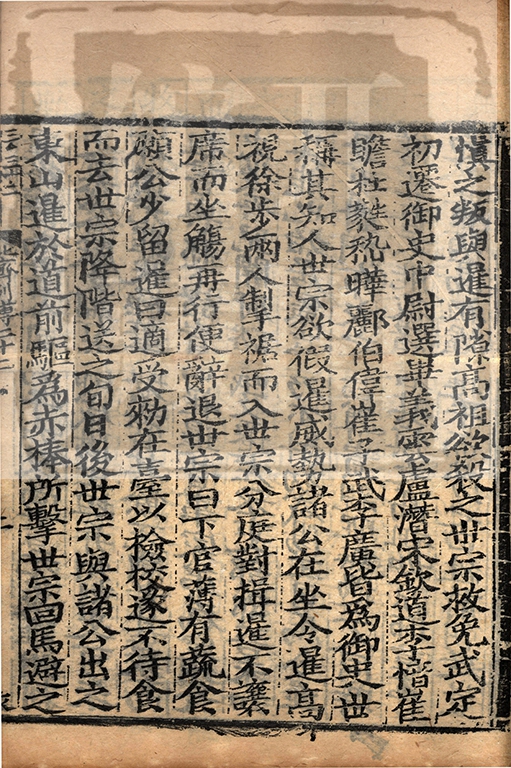 慎之叛與暹有隙高祖欲殺之世宗救免武定
初遷御史中尉選畢義雲盧潛宋欽道李愔崔
瞻杜蕤嵇曄酈伯偉崔子武李廣皆為御史世
稱其知人世宗欲假暹威勢諸公在坐令暹高
視徐步兩人掣裾而入世宗分庭對揖暹不讓
席而坐觴再行便辭退世宗曰下官薄有蔬食
願公少留暹曰適受勑在臺以檢校遂不待食
而去世宗降階送之旬日後世宗與諸公出之
東山暹於道前驅為赤棒所擊世宗回馬避之